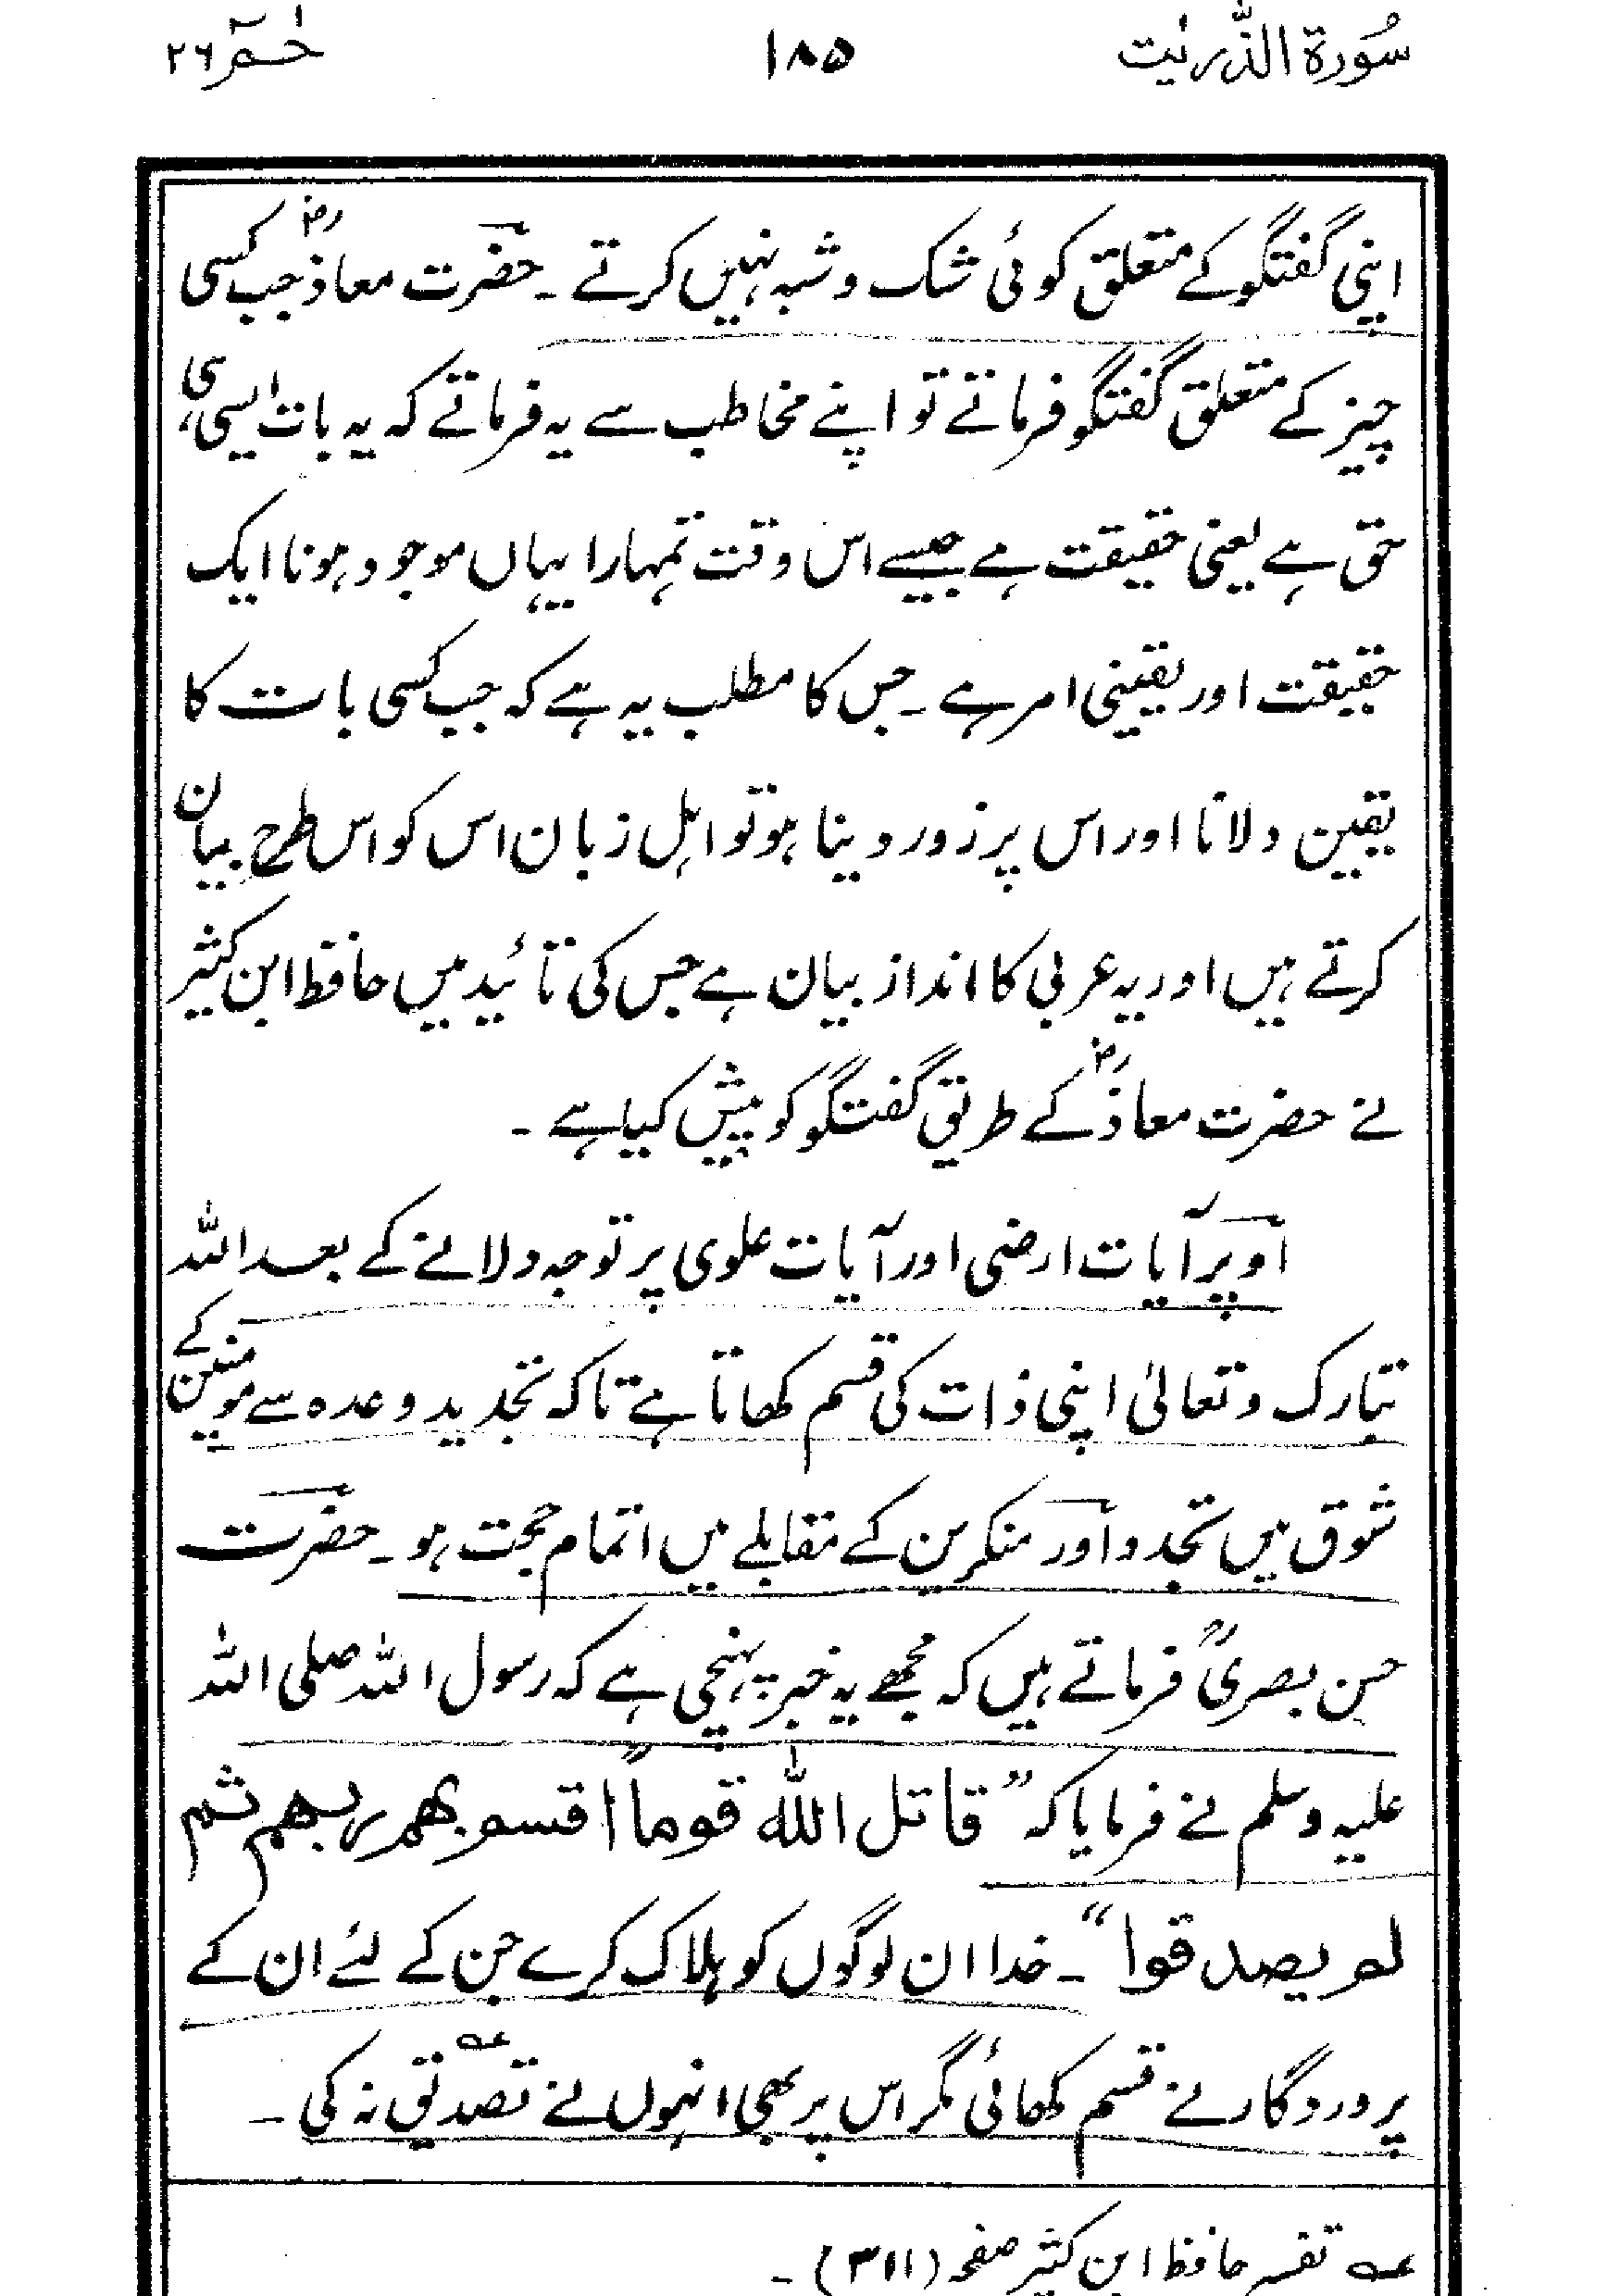 سُورة الذّٰریٰت ۱۸۵ حٰمٓ ۲۶
اپنی گفتگو کے متعلق کوئی شک و شبہ نہیں کرتے ۔ حضرت معاذؓ جب کسی
چیز کے متعلق گفتگو فرماتے تو اپنے مخاطب سے یہ فرماتے کہ یہ بات ایسی ہی
حق ہے یعنی حقیقت ہے جیسے اس وقت تمہارا یہاں موجود ہونا ایک
حقیقت اور یقینی امر ہے ۔ جس کا مطلب یہ ہے کہ جب کسی بات کا
یقین دلانا اور اس پر زور دینا ہو تو اہل زبان اس کو اس طرح بیان
کرتے ہیں اور یہ عربی کا انداز بیان ہے جس کی تائید میں حافظ ابن کثیر
نے حضرت معاذؓ کے طریق گفتگو کو پیش کیا ہے ۔
اوپر آیات ارضی اور آیات علوی پر توجہ دلانے کے بعد اللہ
تبارک و تعالیٰ اپنی ذات کی قسم کھاتا ہے تاکہ تجدید وعدہ سے مومنین کے
شوق میں تجدد اور منکرین کے مقابلے میں اتمام حجت ہو ۔ حضرت
حسن بصریؒ فرماتے ہیں کہ مجھے یہ خبر پہنچی ہے کہ رسول اللہ صلی اللہ
علیہ وسلم نے فرمایا کہ ”قاتل اللہ قوماً اقسم بھم ربھم ثم
لم یصدقوا“ ۔ خدا ان لوگوں کو ہلاک کرے جن کے لئے ان کے
پروردگار نے قسم کھائی مگر اس پر بھی انہوں نے تصدیق نہ کی ؎ ۔
؎ تفسیر حافظ ابن کثیر صفحہ (۳۱۱) ۔